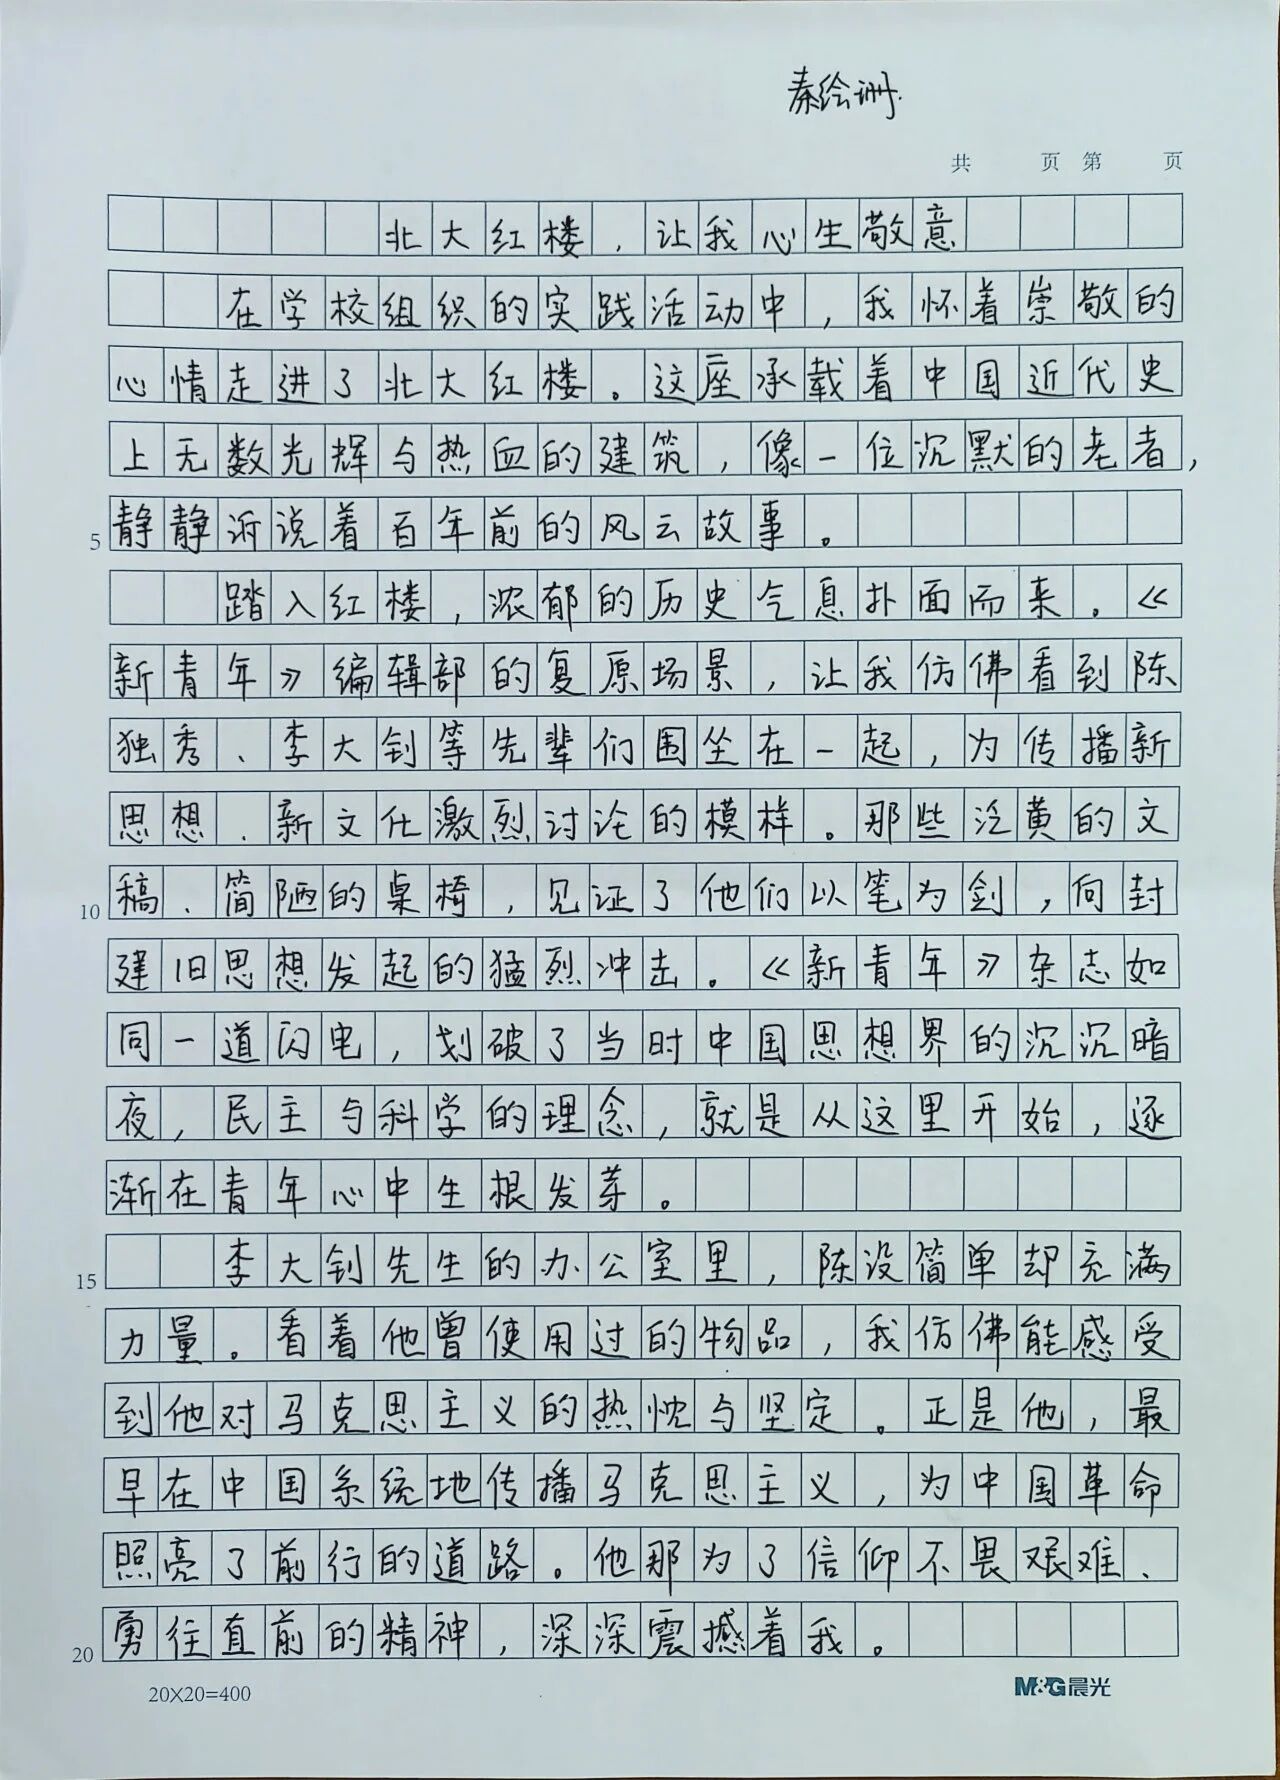 秦绘珊.
共 页 第 页
北大红楼，让我心生敬意
在学校组织的实践活动中，我怀着崇敬的
心情走进了北大红楼。这座承载着中国近代史
上无数光辉与热血的建筑，像一位沉默的老者，
5 静静诉说着百年前的风云故事。
踏入红楼，浓郁的历史气息扑面而来。《
新青年》编辑部的复原场景，让我仿佛看到陈
独秀、李大钊等先辈们围坐在一起，为传播新
思想、新文化激烈讨论的模样。那些泛黄的文
10 稿、简陋的桌椅，见证了他们以笔为剑，向封
建旧思想发起的猛烈冲击。《新青年》杂志如
同一道闪电，划破了当时中国思想界的沉沉暗
夜，民主与科学的理念，就是从这里开始，逐
渐在青年心中生根发芽。
15 李大钊先生的办公室里，陈设简单却充满
力量。看着他曾使用过的物品，我仿佛能感受
到他对马克思主义的热忱与坚定。正是他，最
早在中国系统地传播马克思主义，为中国革命
照亮了前行的道路。他那为了信仰不畏艰难、
20 勇往直前的精神，深深震撼着我。
20X20=400
M&G晨光